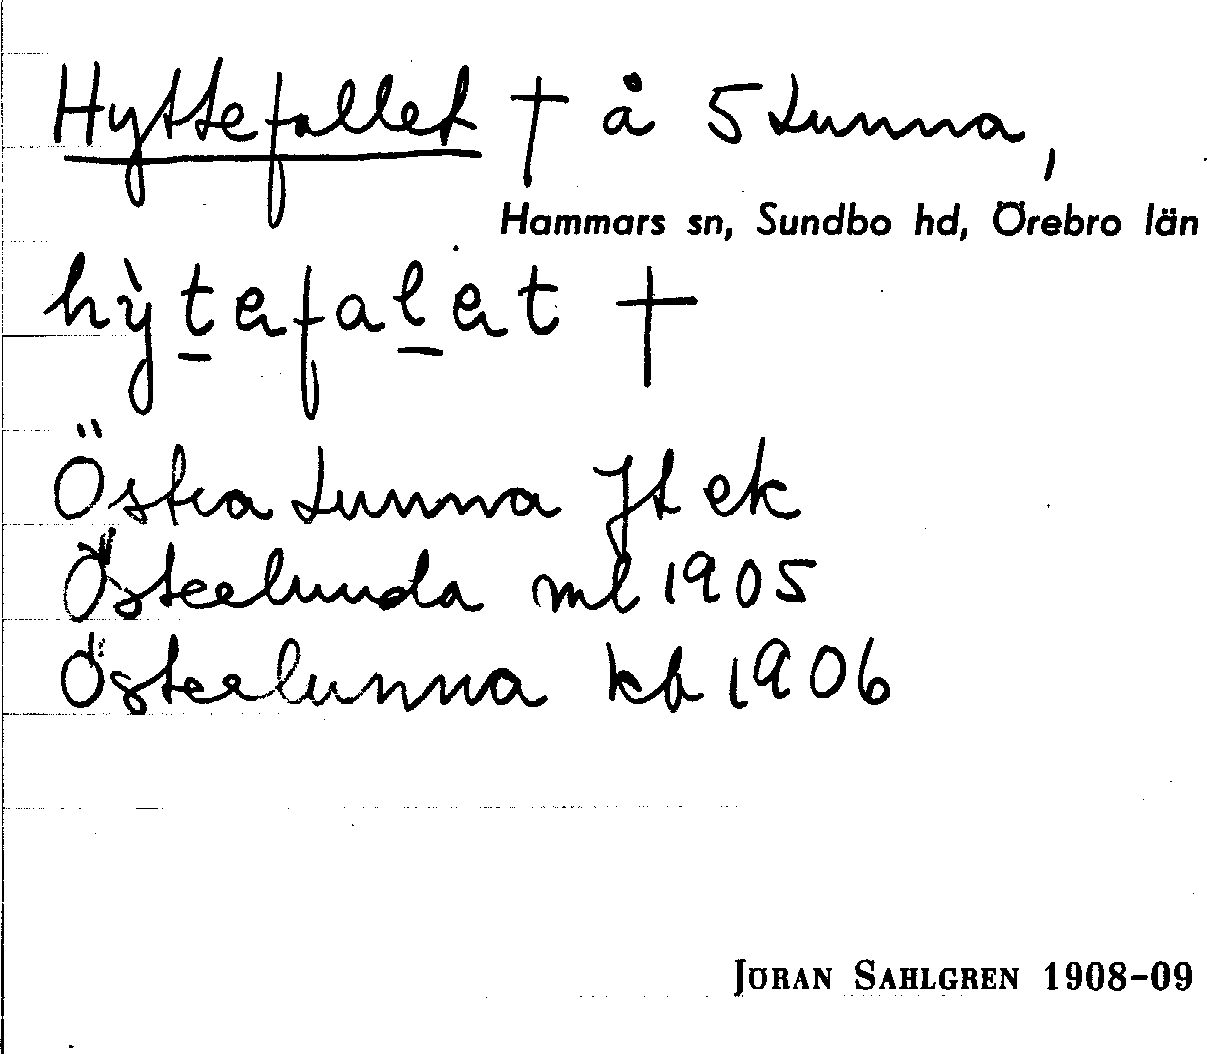 Hyttefallet † å 5 Lunna,
Hammars sn, Sundbo hd, Örebro län
hỳtefalet †
Östra Lunna Jt ek
Österlunda ml 1905
Österlunna kb 1906
JÖRAN SAHLGREN 1908-09